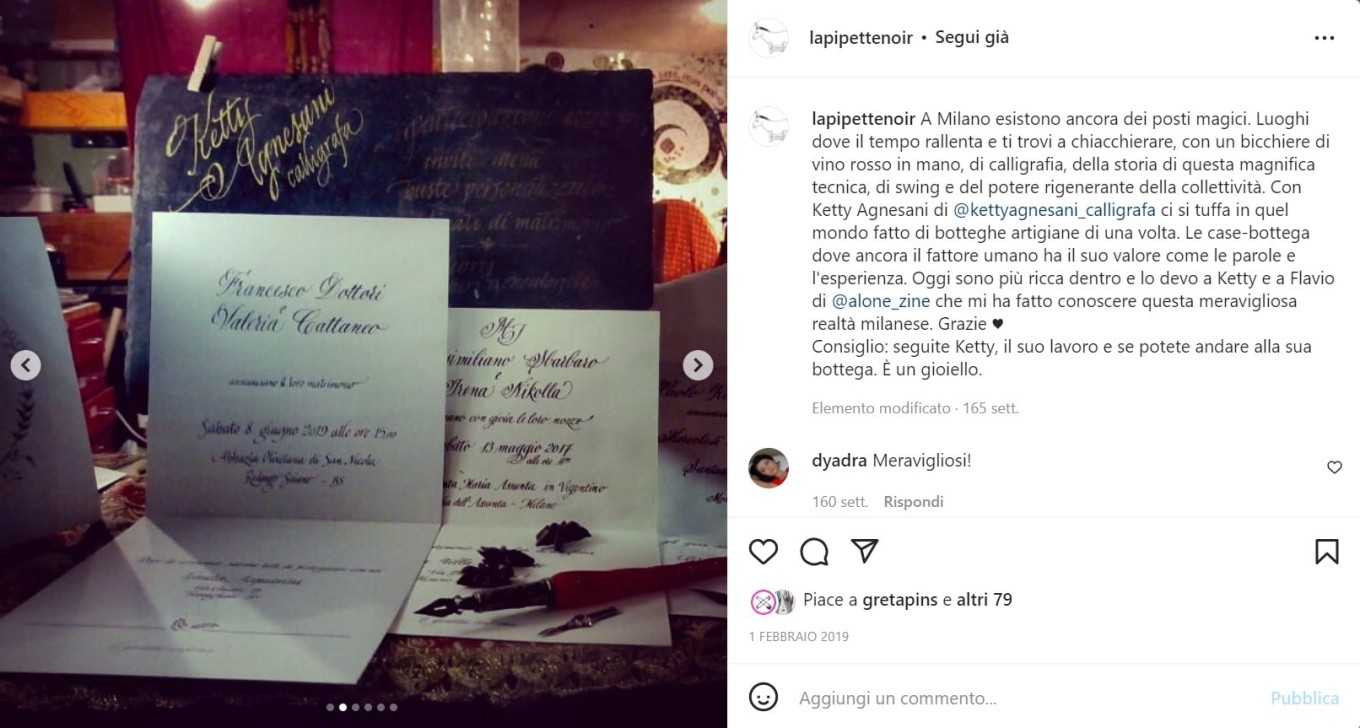 Ketty
Agnesani
calligrafa
inviti menu
buste personalizzate
di matrimonio
Francesco Dottori
e
Valeria Cattaneo
annunciano il loro matrimonio
Sabato 8 giugno 2019 alle ore 15,00
Abbazia Olivetana di San Nicola
Rodengo Saiano - BS
MJ
imiliano Sbarbaro
e
Irena Nikolla
ano con gioia le loro nozze
bato 13 maggio 2017
alle ore
ta Maria Assunta in Vigentino
dell'Assunta - Milano
Mercoledì
lapipettenoir • Segui già
lapipettenoir A Milano esistono ancora dei posti magici. Luoghi
dove il tempo rallenta e ti trovi a chiacchierare, con un bicchiere di
vino rosso in mano, di calligrafia, della storia di questa magnifica
tecnica, di swing e del potere rigenerante della collettività. Con
Ketty Agnesani di @kettyagnesani_calligrafa ci si tuffa in quel
mondo fatto di botteghe artigiane di una volta. Le case-bottega
dove ancora il fattore umano ha il suo valore come le parole e
l'esperienza. Oggi sono più ricca dentro e lo devo a Ketty e a Flavio
di @alone_zine che mi ha fatto conoscere questa meravigliosa
realtà milanese. Grazie ♥
Consiglio: seguite Ketty, il suo lavoro e se potete andare alla sua
bottega. È un gioiello.
Elemento modificato · 165 sett.
dyadra Meravigliosi!
160 sett. Rispondi
Piace a gretapins e altri 79
1 FEBBRAIO 2019
Aggiungi un commento... Pubblica